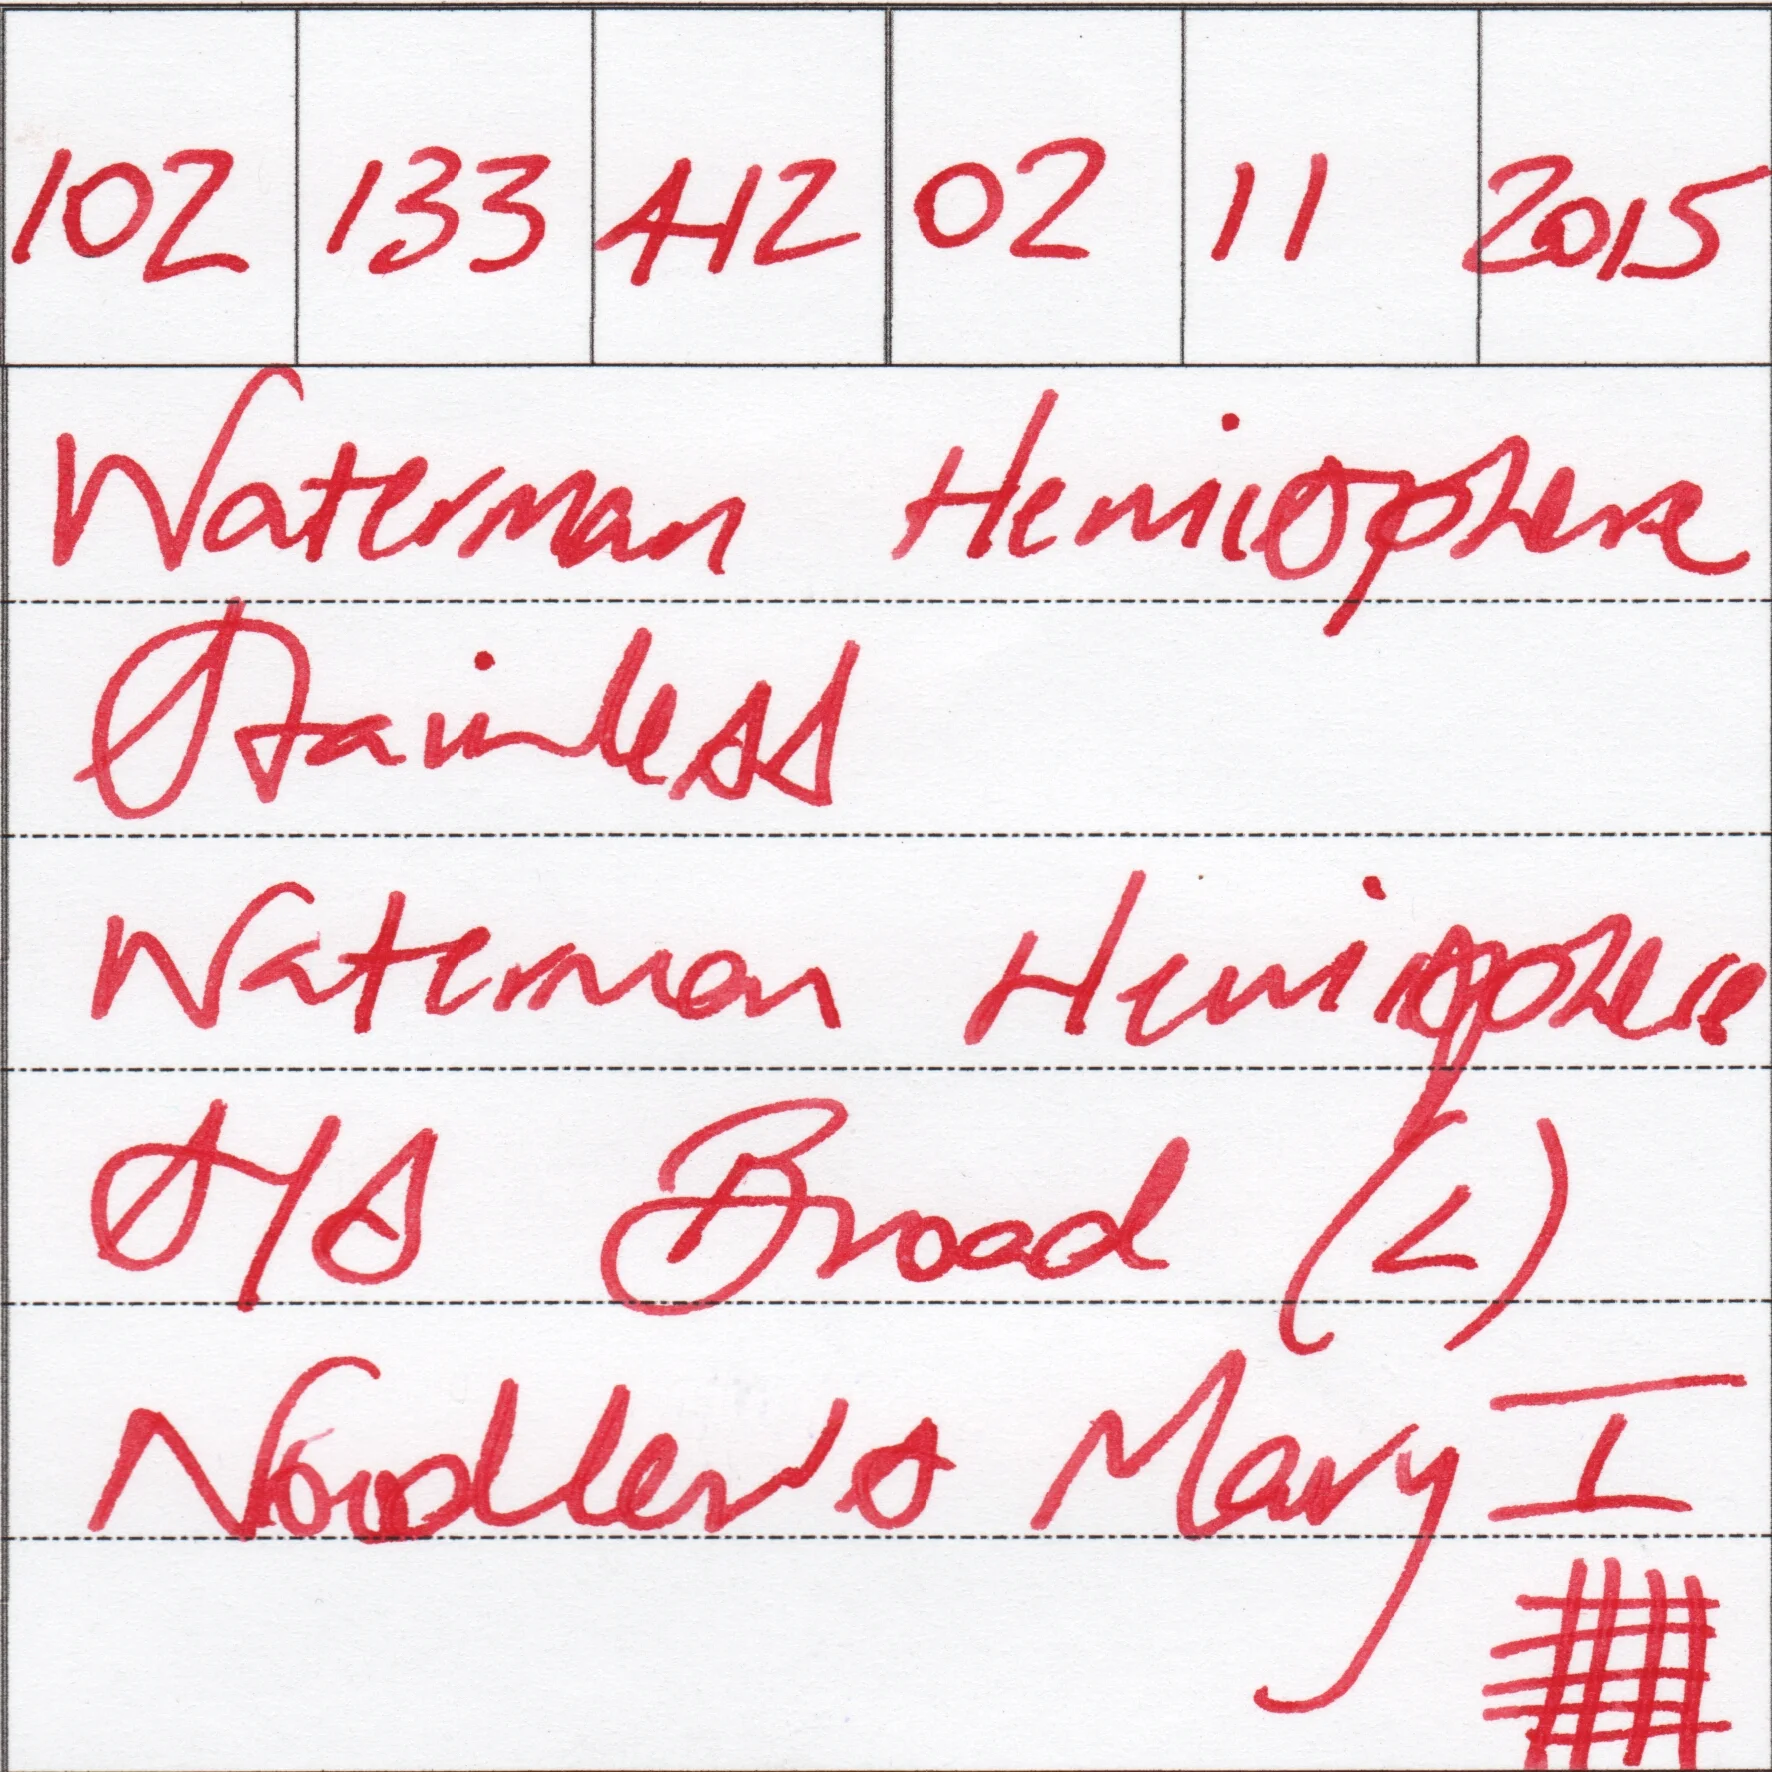 102 133 412 02 11 2015
Waterman Hemisphere
Stainless
Waterman Hemisphere
S/S Broad (L)
Noodler's Mary I